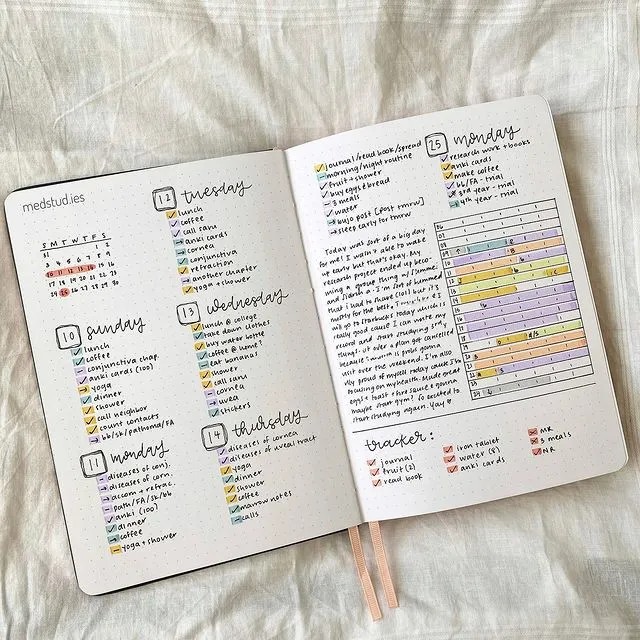 medstud.ies
S M T W T F S
1 2
3 4 5 6 7 8 9
10 11 12 13 14 15 16
17 18 19 20 21 22 23
24 25 26 27 28 29 30
10 sunday
lunch
coffee
conjunctiva chap.
anki cards (100)
yoga
dinner
shower
call neighbor
count contacts
bb/sk/pathoma/FA
11 monday
diseases of conj.
diseases of corn.
accom + refrac.
path/FA/sk/bb
anki (100)
dinner
coffee
yoga + shower
12 tuesday
lunch
coffee
call sanu
anki cards
cornea
conjunctiva
refraction
another chapter
yoga + shower
13 wednesday
lunch @ college
take down clothes
buy water bottle
coffee @ home!
eat bananas
shower
call sanu
cornea
uvea
stickers
14 thursday
diseases of cornea
diseases of uveal tract
yoga
dinner
shower
coffee
marrow notes
calls
journal/read book/spread
morning/night routine
fruit + shower
buy eggs & bread
3 meals
water
bujo post [post tmrw]
sleep early for tmrw
25 monday
research work + books
anki cards
make coffee
bb/FA - trial
3rd year - trial
4th year - trial
Today was sort of a big day
for me! I wasn't able to make
up early but that's okay. My
research project ended up beco-
ming a group thing w/
I'm sort of bummed
that I had to but it's
mostly for the best. I
will go to Starbucks today which is
really good cause I can write my
record and start studying stuff
things. ut over a plan got cancelled
because is prob gonna
visit over the weekend. I'm also
rly proud of myself today cause I'm
focusing on my health. Made great
eggs & toast & for sure gonna
maybe start gym? So excited to
start studying again. Yay
tracker:
journal
fruit (2)
read book
iron tablet
water (8)
anki cards
MR
3 meals
NR